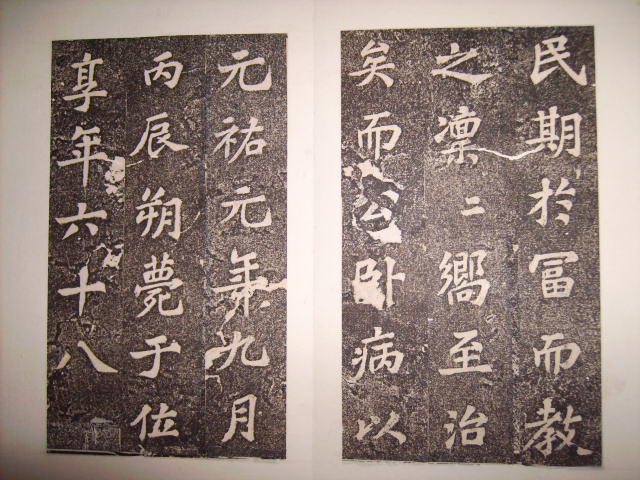 民期於冨而教
之凜二嚮至治
矣而公卧病以
元祐元年九月
丙辰朔薨于位
享年六十八